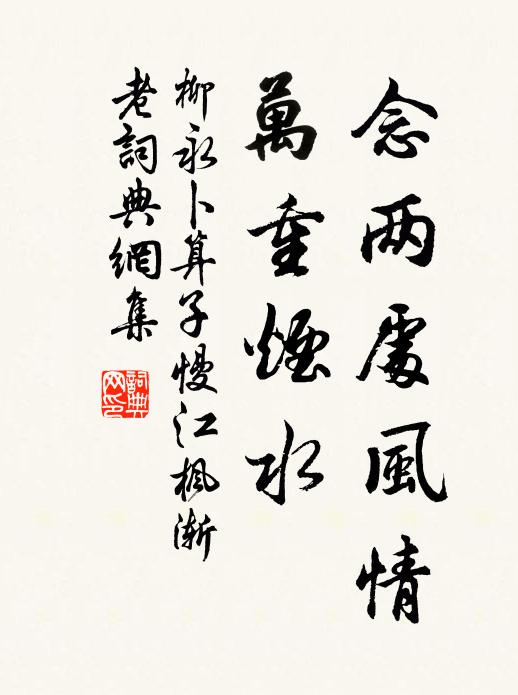 念两處風情
萬重煙水
柳永卜算子慢江楓漸
老詞典網集
詞典网印